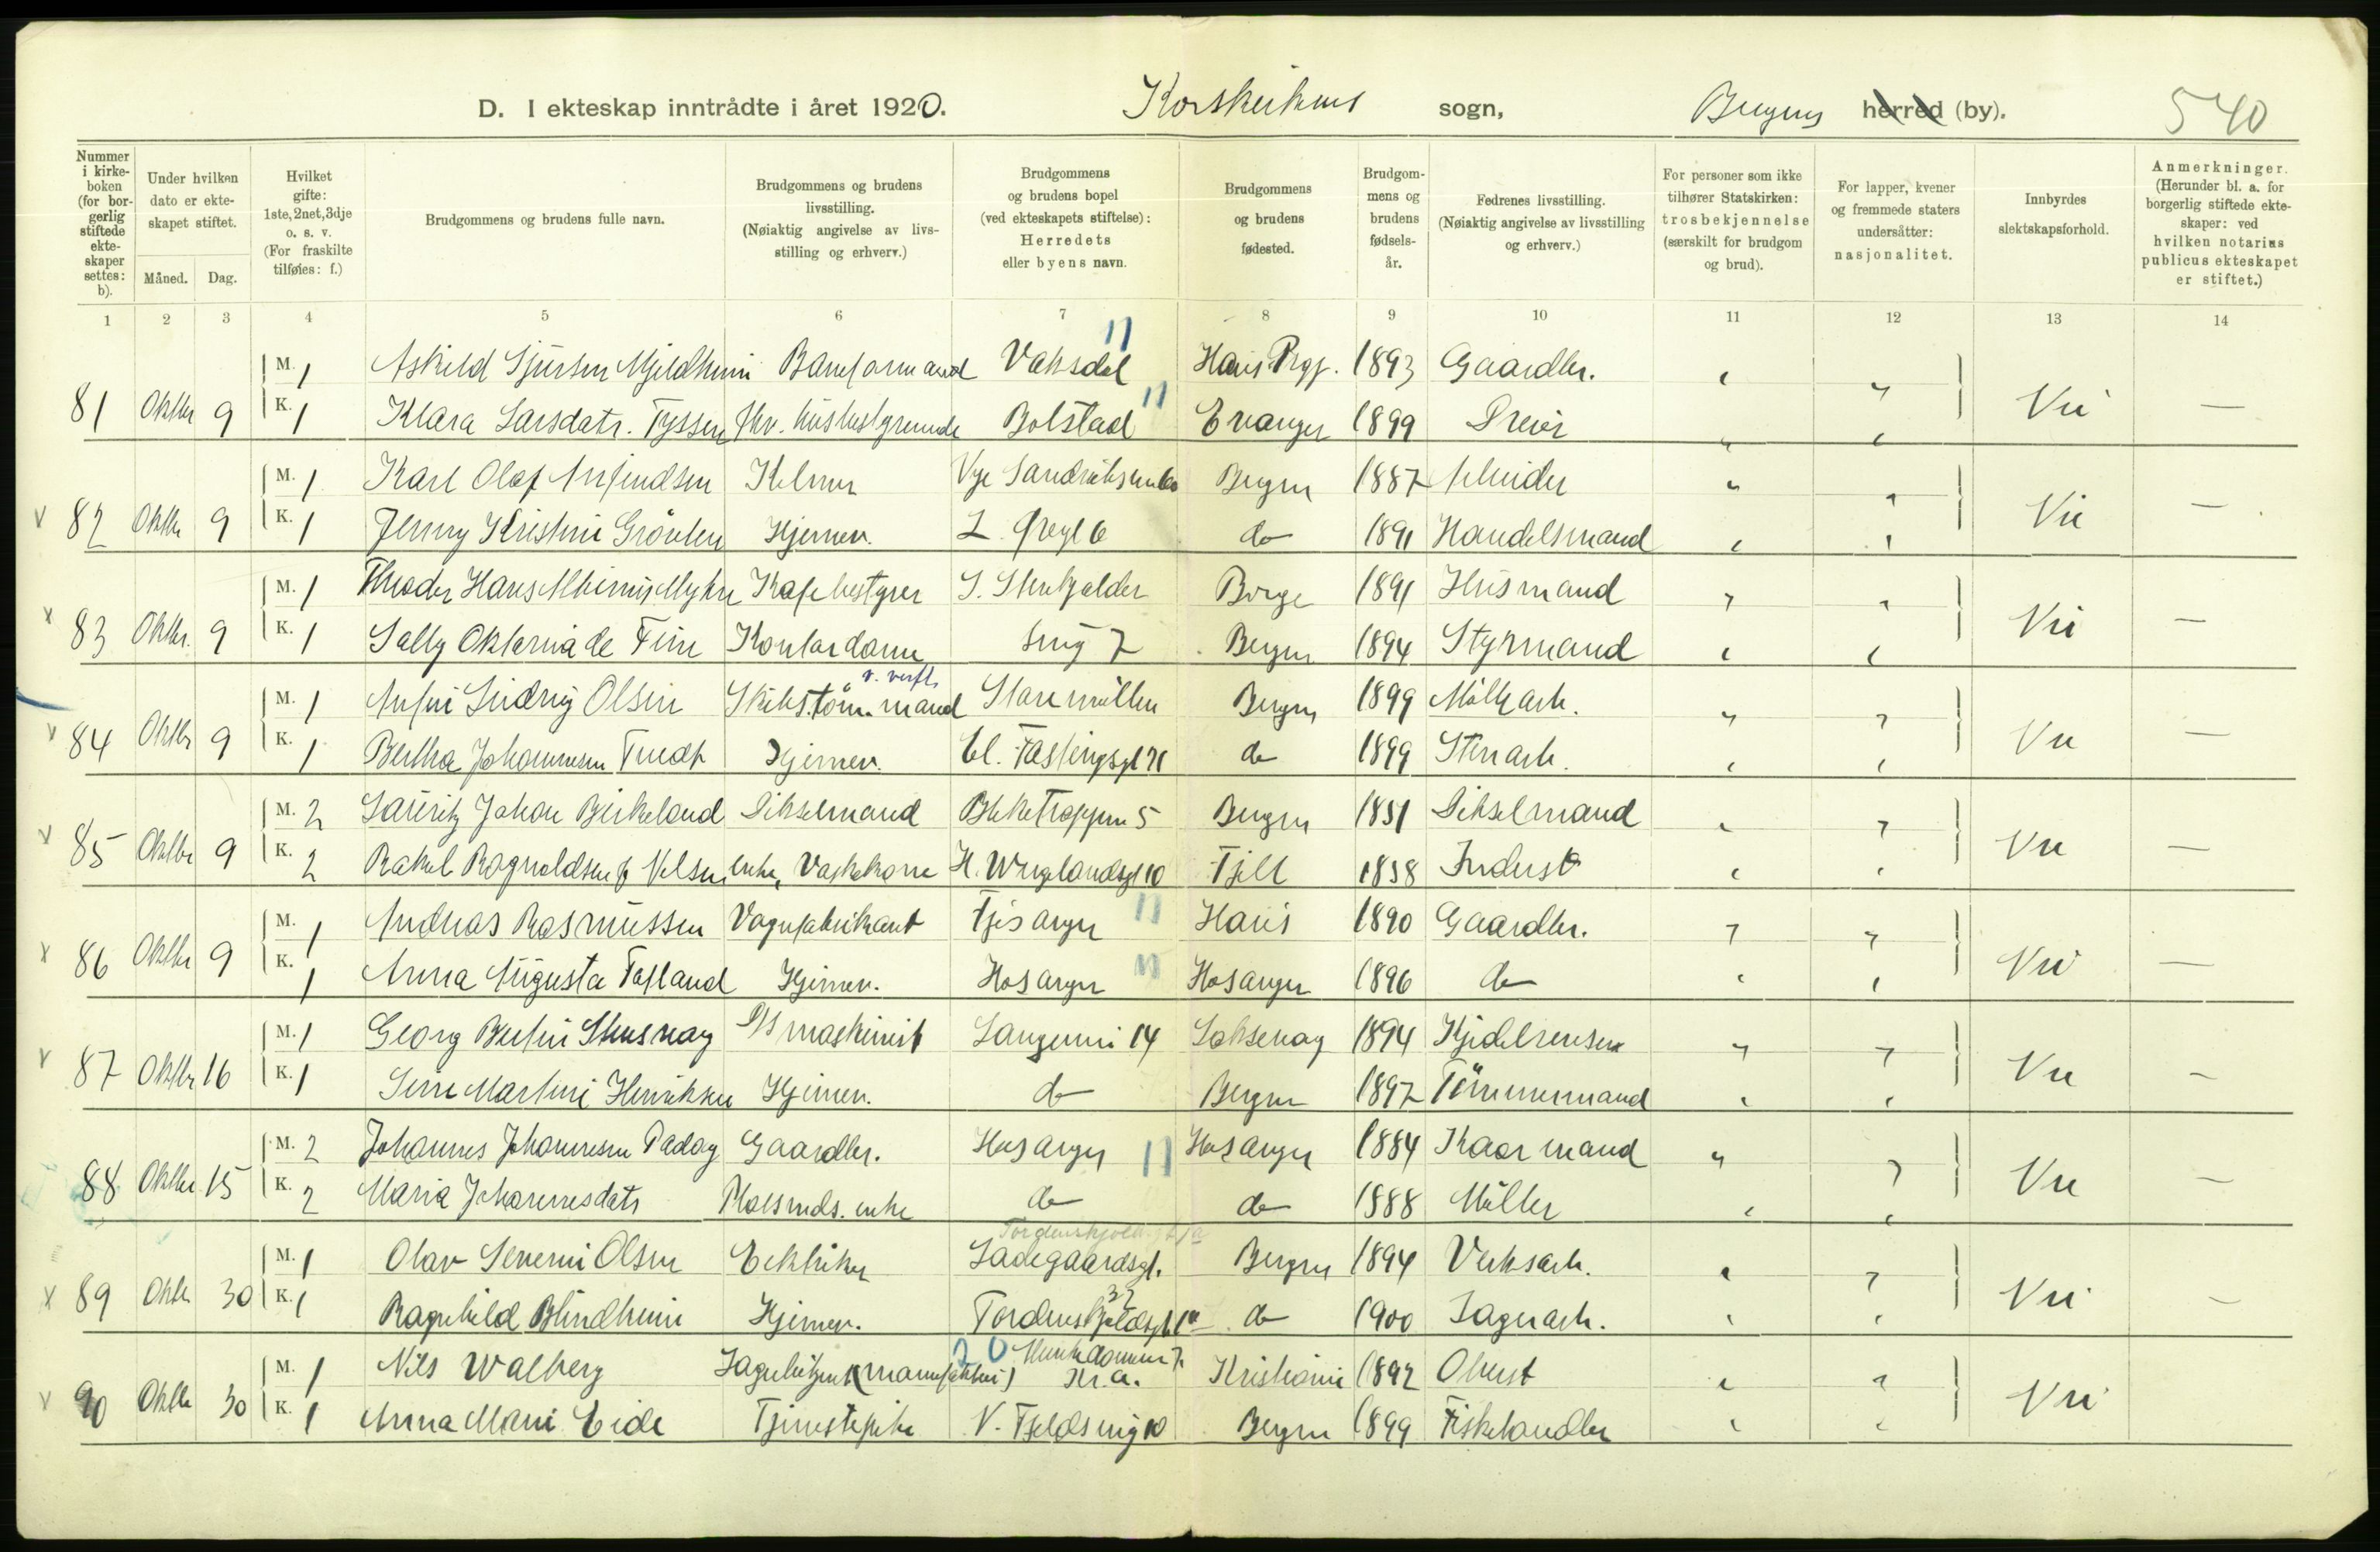 D. I ekteskap inntrådte i året 1920. Korskirkens sogn, Bergens herred (by). 540
Nummer i kirkeboken (for borgerlig stiftede ekteskaper settes: b).
Under hvilken dato er ekteskapet stiftet.
Måned. Dag.
Hvilket gifte: 1ste, 2net, 3dje o. s. v. (For fraskilte tilføies: f.)
Brudgommens og brudens fulle navn.
Brudgommens og brudens livsstilling. (Nøiaktig angivelse av livsstilling og erhverv.)
Brudgommens og brudens bopel (ved ekteskapets stiftelse): Herredets eller byens navn.
Brudgommens og brudens fødested.
Brudgommens og brudens fødselsår.
Fedrenes livsstilling. (Nøiaktig angivelse av livsstilling og erhverv.)
For personer som ikke tilhører Statskirken: trosbekjennelse (særskilt for brudgom og brud).
For lapper, kvener og fremmede staters undersåtter: nasjonalitet.
Innbyrdes slektskapsforhold.
Anmerkninger. (Herunder bl. a. for borgerlig stiftede ekteskaper: ved hvilken notarius publicus ekteskapet er stiftet.)
1 2 3 4 5 6 7 8 9 10 11 12 13 14
M. 1 Askild Sjursen Mjeldheim Baneformand Vaksdal 11 Haus Prgj. 1893 Gaardbr. "
81 Oktbr 9 K. 1 Klara Larsdatr. Tyssen Bolstad 11 Evanger 1899 " Nei —
M. 1 Karl Olaf Arfindsen Kelner Bergen 1887 "
82 Oktbr 9 K. 1 Jenny Kristine Grönlen Hjemmev. do 1891 Handelsmand " Nei —
M. 1 Theodor Hans Myhre Kafebestyrer Borge 1891 Husmand "
83 Oktbr. 9 K. 1 Sally Oktavia de Fine Kontordame smug 7 Bergen 1894 Styrmand " Nei —
v. verft.
M. 1 Ludvig Olsen Skibstöm.mand Staremöllen Bergen 1899 "
84 Oktbr 9 K. 1 Bertha Johannesen Tvedt Hjemmev. Cl. Fastingsgt 21 do 1899 Stenarb. " Nei —
M. 2 Lauritz Johan Birkeland Dikselmand Bleketrappen 5 Bergen 1851 Dikselmand "
85 Oktbr 9 K. 2 Rakel Ragnvaldsen f Nilsen enke, Vaskekone H. Wergelandsgt 10 Fjell 1858 Inderst " Nei —
M. 1 Andreas Rasmussen Vognfabrikant Fjösanger 11 Haus 1890 Gaardbr. "
86 Oktbr 9 K. 1 Anna Augusta Tofland Hjemmev. Hosanger 11 Hosanger 1896 do " Nei —
M. 1 Georg Bertin D/S maskinist 14 Loksevag 1894 Kjedelrenser "
87 Oktbr 16 K. 1 Martine Henriksen Hjemmev. do Bergen 1897 Tömmermand " Nei —
M. 2 Johannes Johannesen Padøy Gaardbr. Hosanger 11 Hosanger 1884 Kaarmand "
88 Oktbr 15 K. 2 Maria Johannesdatr enke do do 1888 Möller " Nei —
Tordenskjoldsgt 1a
M. 1 Olav Severin Olsen Elektriker Ladegaardsgt. 32 Bergen 1894 Verksarb. "
89 Oktb 30 K. 1 Ragnhild Blindheim Hjemmev. Tordenskjoldsgt 1a do 1900 Lagerarb. " Nei —
20 Munkedamsv 7.
M. 1 Nils Walberg Lagerbetjent (manufaktur) Kr.a. Kristiania 1892 Oberst "
90 Oktb 30 K. 1 Anna Marie Eide Tjenestepike N. Fjeldsmug 10 Bergen 1899 Fiskehandler " Nei